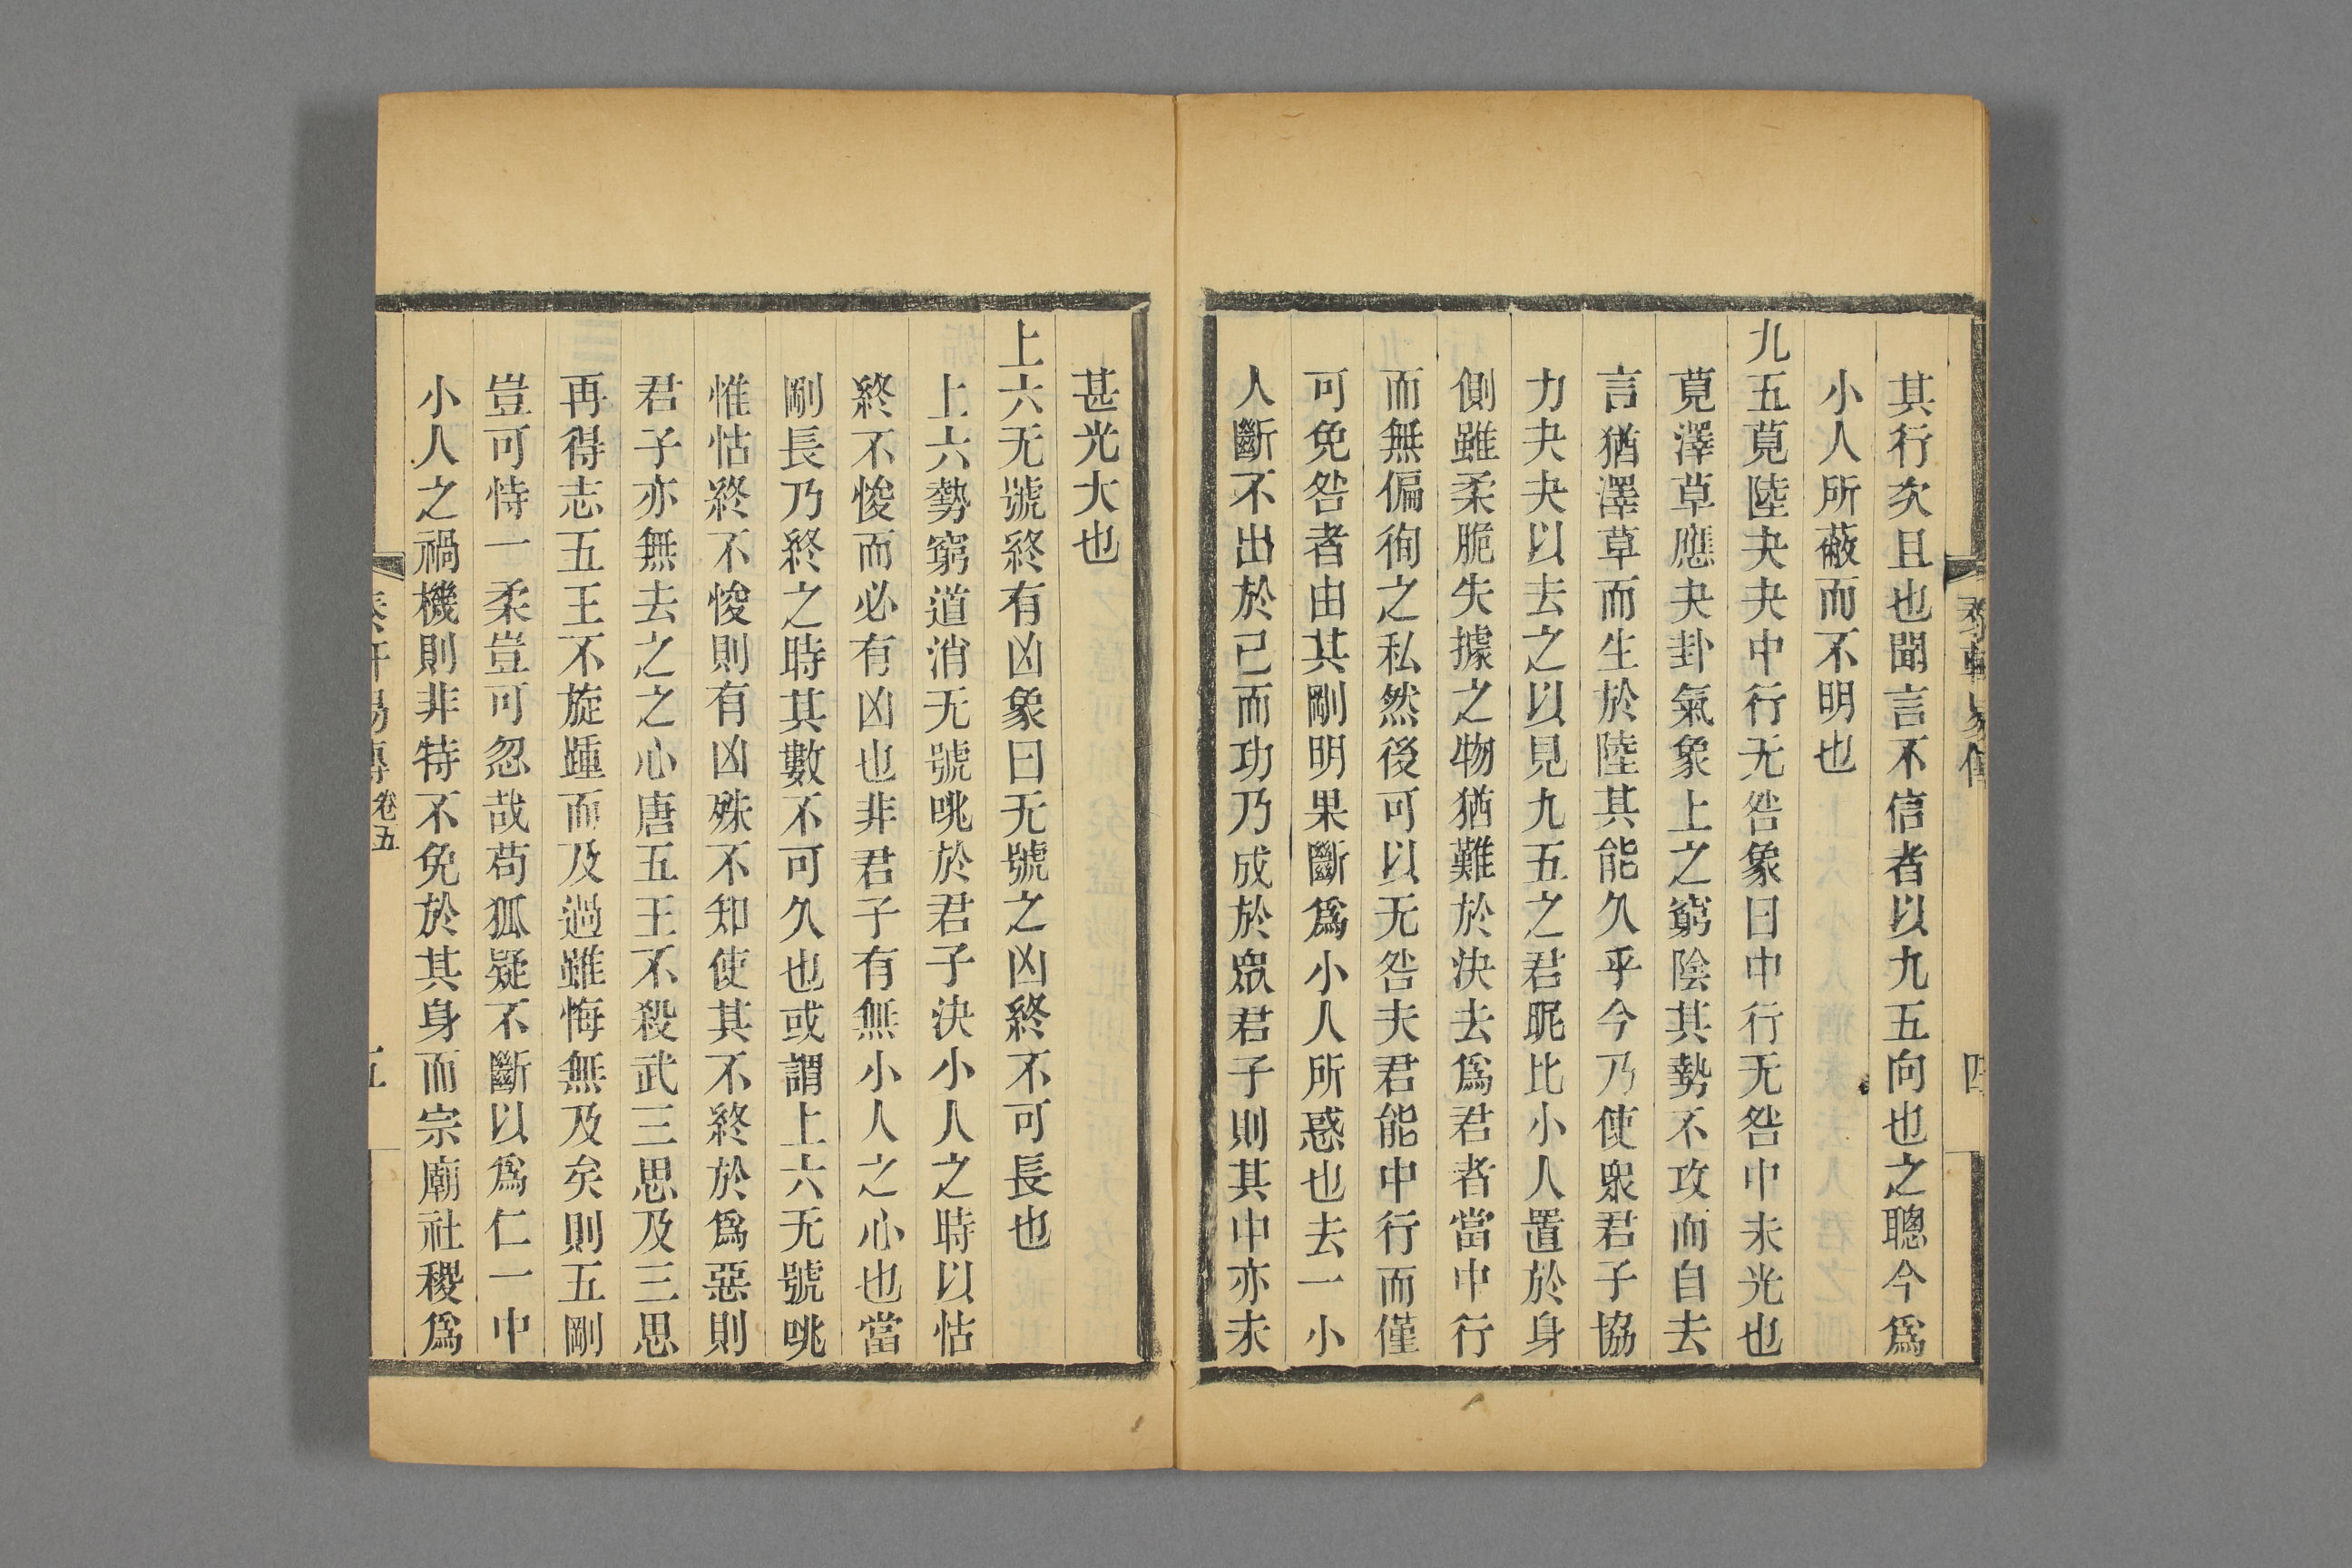 其行次且也聞言不信者以九五向也之聰今爲
小人所蔽而不明也
九五莧陸夬夬中行无咎象曰中行无咎中未光也
莧澤草應夬卦氣象上之窮陰其勢不攻而自去
言猶澤草而生於陸其能久乎今乃使衆君子協
力夬夬以去之以見九五之君昵比小人置於身
側雖柔脆失據之物猶難於決去爲君者當中行
而無偏徇之私然後可以无咎夫君能中行而僅
可免咎者由其剛明果斷爲小人所惑也去一小
人斷不出於己而功乃成於眾君子則其中亦未
甚光大也
上六无號終有凶象曰无號之凶終不可長也
上六勢窮道消无號咷於君子決小人之時以怙
終不悛而必有凶也非君子有無小人之心也當
剛長乃終之時其數不可久也或謂上六无號咷
惟怙終不悛則有凶殊不知使其不終於爲惡則
君子亦無去之之心唐五王不殺武三思及三思
再得志五王不旋踵而及過雖悔無及矣則五剛
豈可恃一柔豈可忽哉苟狐疑不斷以爲仁一中
小人之禍機則非特不免於其身而宗廟社稷爲
易傳 卷五
五